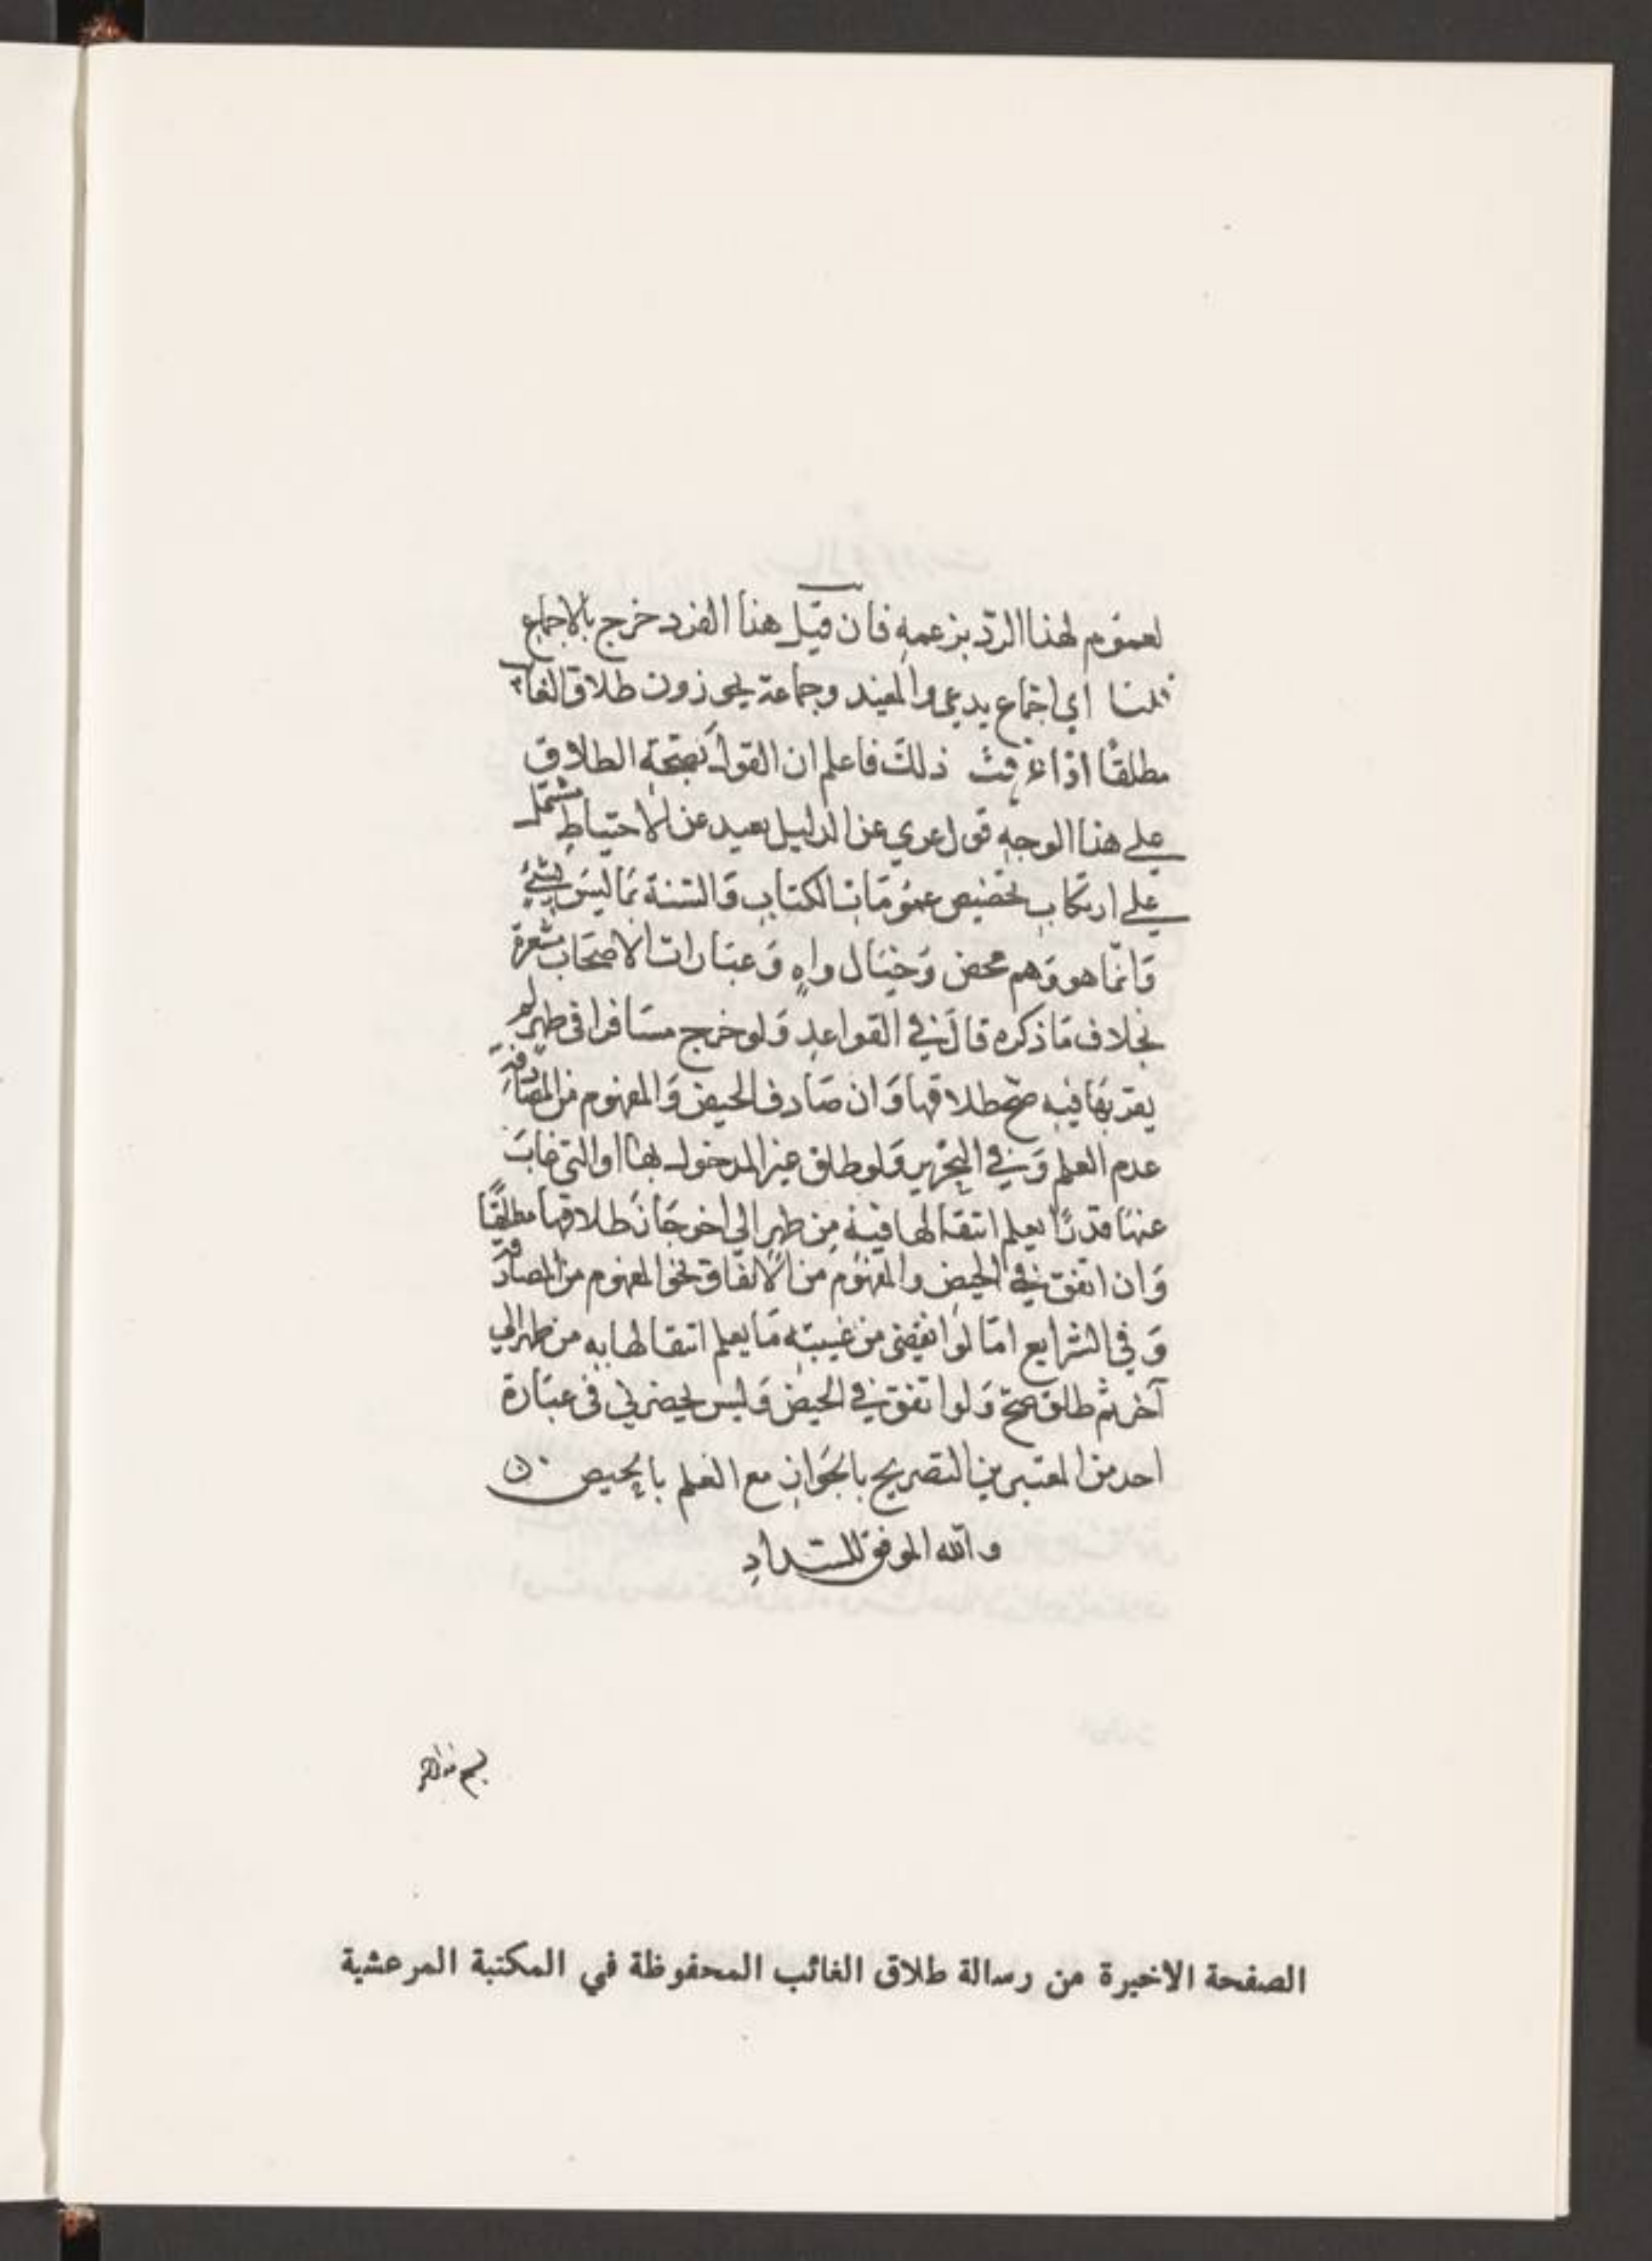 لعموم لهذا الردّ بزعمه فان قيل هذا الفرد خرج بالاجماع
قلنا اي اجماع يدعي والمفيد وجماعة يجوزون طلاق الغائب
مطلقا اذا عرفت ذلك فاعلم ان القول بصحة الطلاق
علي هذا الوجه قول عري عن الدليل بعيد عن الاحتياط مشتمل
علي ارتكاب تخصيص عمومات الكتاب والسنة بما ليس بشيء
وانما هو وهم محض وخيال واه وعبارات الاصحاب مشعرة
بخلاف ما ذكره قال في القواعد ولو خرج مسافرا في طهر لم
يقربها فيه صح طلاقها وان صادف الحيض والمفهوم من المصادفة
عدم العلم وفي التحرير ولو طلق غير المدخول بها او التي غاب
عنها قدرًا يعلم انتقالها فيه من طهر الي اخر جاز طلاقها مطلقًا
وان اتفق في الحيض والمفهوم من الاتفاق نحو المفهوم من المصادفة
وفي الشرايع اما لو انقضى من غيبته ما يعلم انتقالها به من طهر الي
آخر ثم طلق صح ولو اتفق في الحيض وليس يحضرني في عبارة
احد من المعتبرين التصريح بالجواز مع العلم بالحيض
والله الموفق للسداد
الصفحة الاخيرة من رسالة طلاق الغائب المحفوظة في المكتبة المرعشية